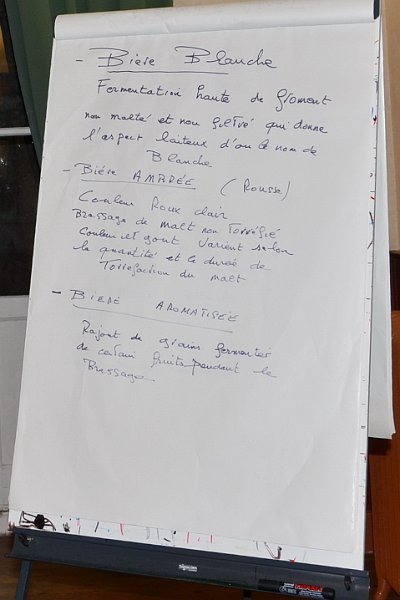 - Bière Blanche
Fermentation haute de froment
non malté et non filtré qui donne
l'aspect laiteux d'où le nom de
Blanche
- Bière AMBRÉE (Rousse)
Couleur Roux clair
Brassage de malt non Torréfié
Couleur et gout varient selon
la quantité et la durée de
Torréfaction du malt
- BIERE AROMATISÉE
Rajout de grains fermentés
de certain fruits pendant le
Brassage